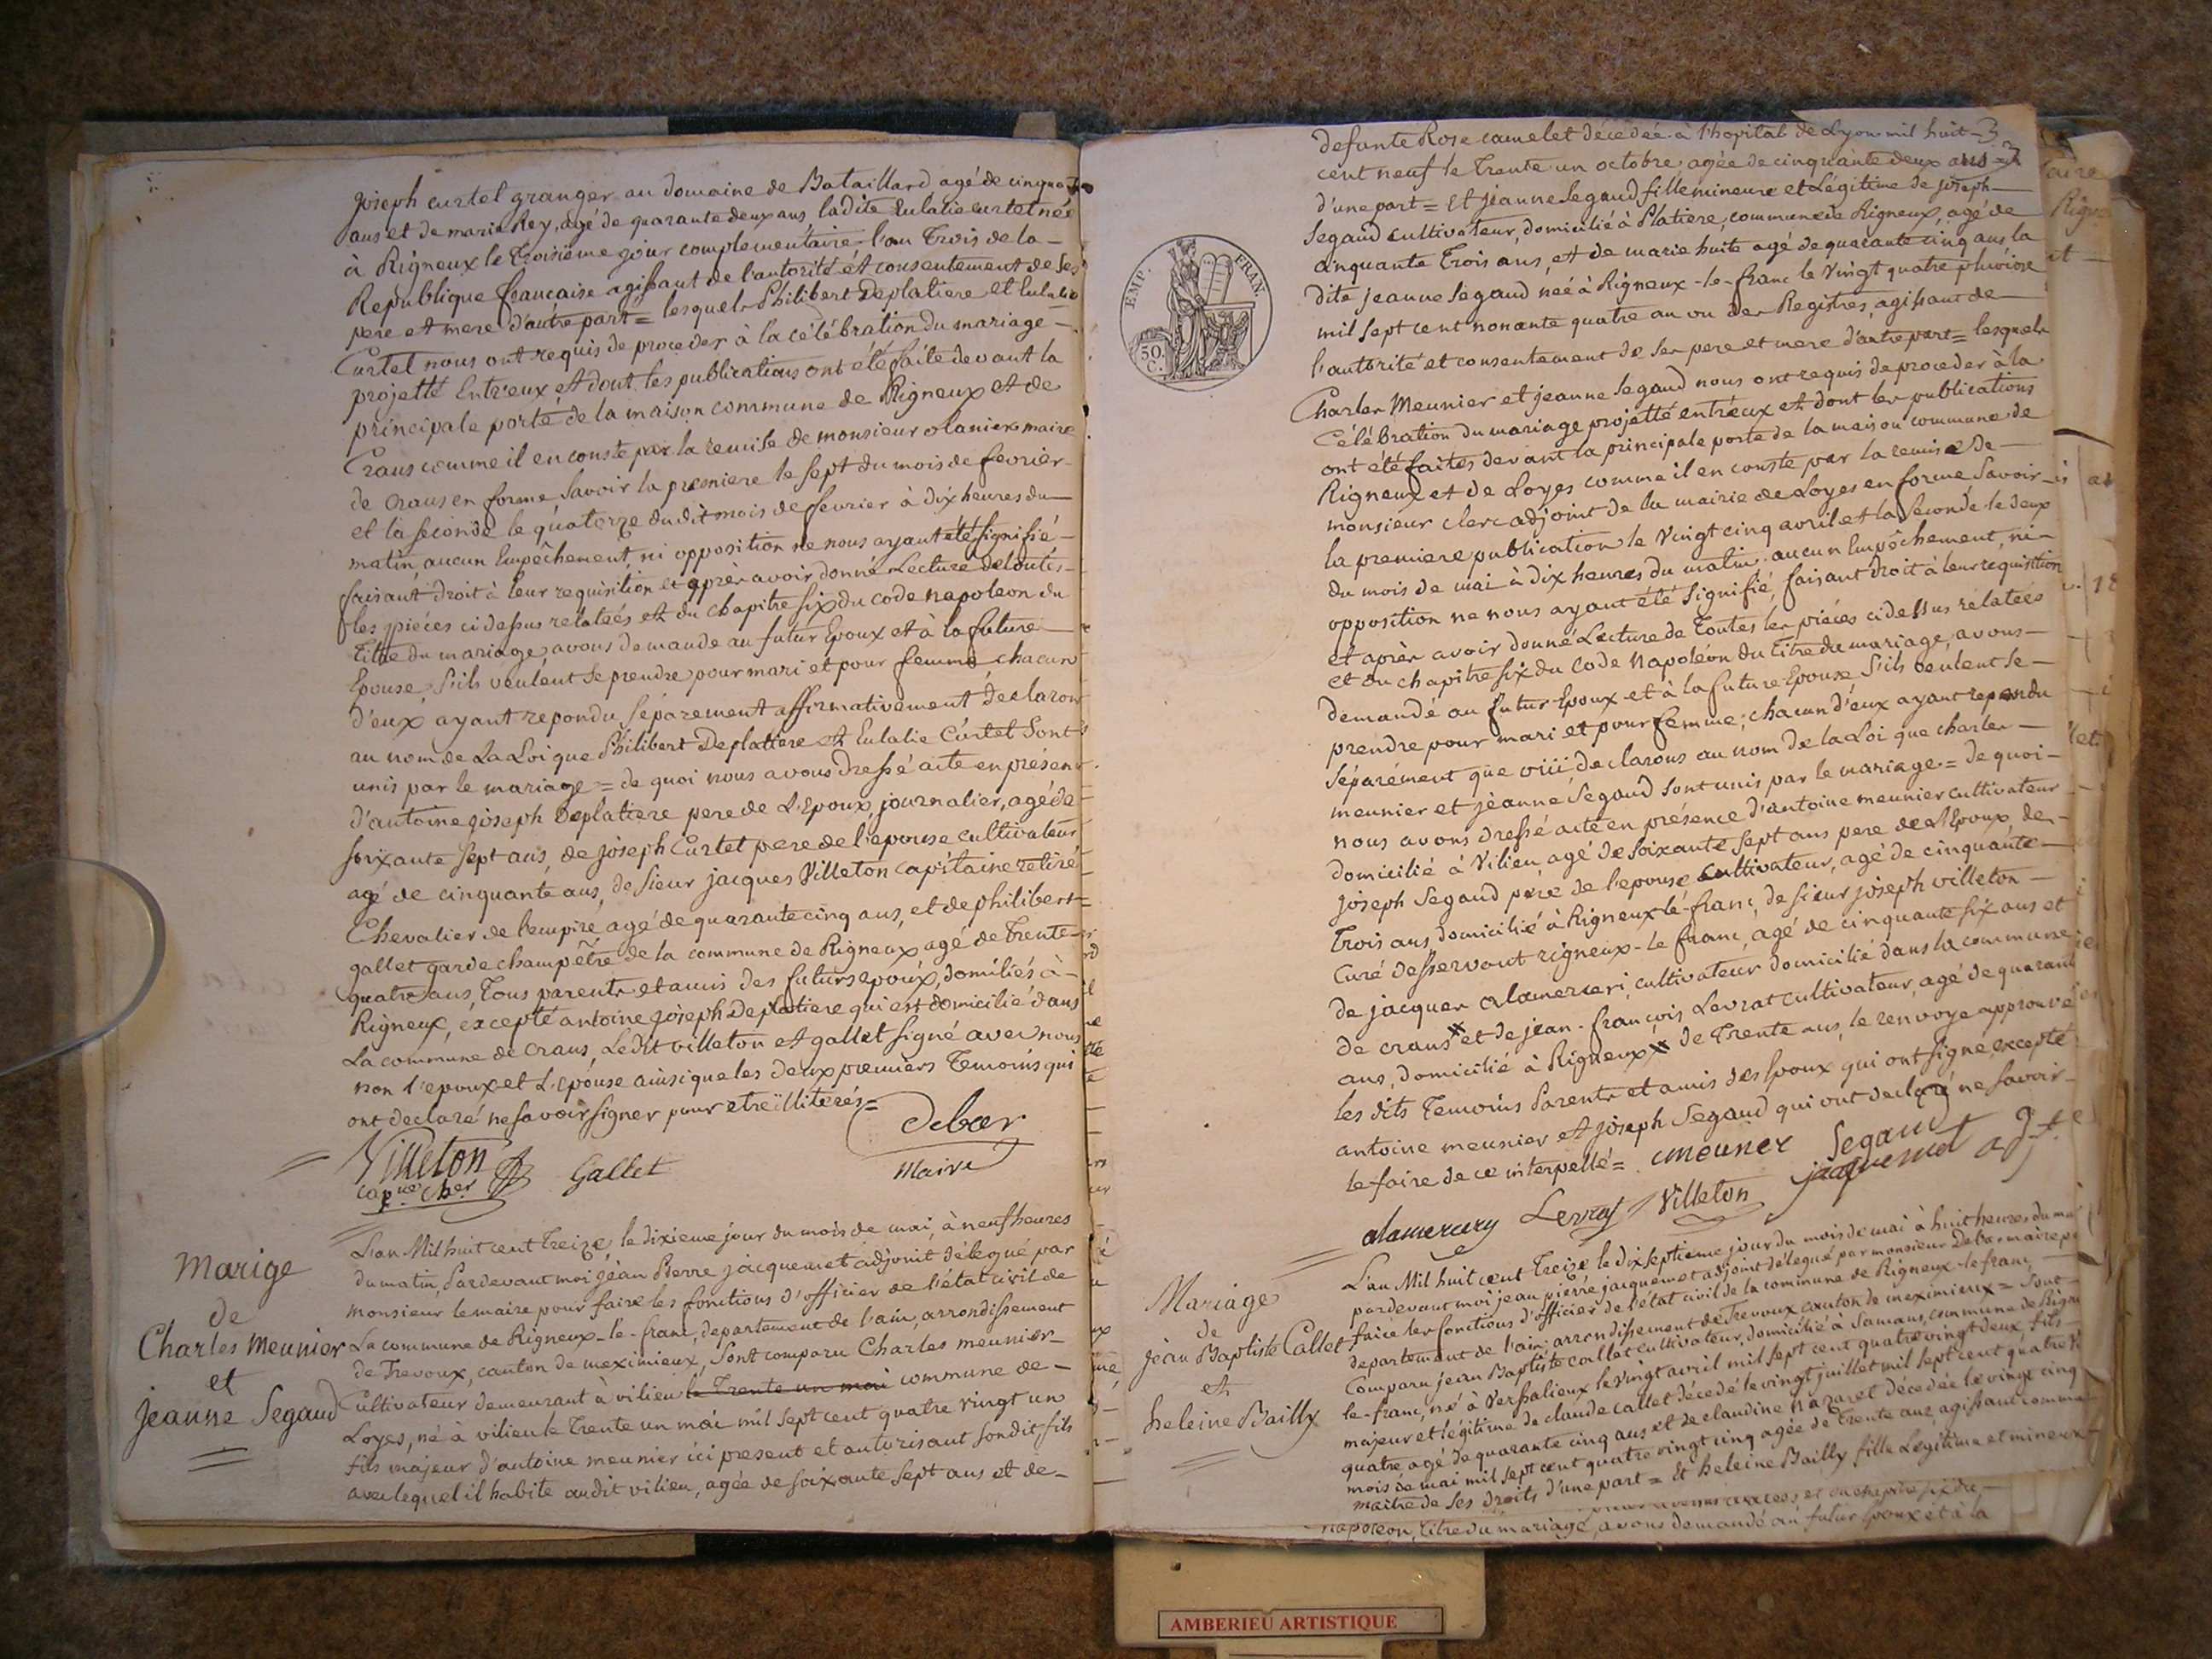 joseph curtel granger au domaine de Bataillard agé de cinquante
ans et de marie Rey, agé de quarante deux ans ladite Eulalie curtet née
à Rigneux le Troisième jour complementaire l'an Trois de la
Republique francaise agissant de l'autorité et consentement de ses
pere et mere d'autre part = lesquels Philibert Deplatiere et Eulalie
Curtel nous ont requis de proceder à la célébration du mariage
projetté Entr'eux et dont les publications ont été faite devant la
principale porte de la maison commune de Rigneux et de
Crans comme il en conste par la remise de monsieur olanier maire
de crans en forme Savoir la premiere le sept du mois de fevrier
et la seconde le quatorze dudit mois de fevrier à dix heures du
matin, aucun Empêchement, ni opposition ne nous ayant été signifié
faisant droit à leur requisition et après avoir donné Lecture de toutes
les piéces ci dessus relatées et du chapitre six du code napoleon du
titre du mariage, avons demande au futur Epoux et à la future
Epouse, s'ils veulent se prendre pour mari et pour femme chacun
d'eux ayant repondu séparement affirmativement declarons
au nom de La Loi que Philibert Deplatiere et Eulalie Curtet Sont
unis par le mariage = de quoi nous avons dressé acte en présence
d'antoine joseph Deplatiere pere de L'Epoux, journalier, agé de
soixante sept ans, de joseph Curtet pere de l'epouse cultivateur
agé de cinquante ans, de sieur jacques Villeton capitaine retiré
Chevalier de l'empire agé de quarante cinq ans, et de philibert
gallet garde champêtre de la commune de Rigneux agé de Trente
quatre ans, Tous parents et amis des futurs epoux, domiliés à
Rigneux, éxcepté antoine joseph Deplatiere qui est domicilié dans
La commune de crans, Ledit villeton et gallet signé avec nous
non l'epoux et L'epouse ainsi que les deux premiers Temoins qui
ont declaré ne savoir signer pour etre illiterés =
Villeton Gallet Debar
capne cher maire
Marige
de
Charles Meunier
et
jeanne Segaud
L'an Mil huit cent Treize, le dixieme jour du mois de mai, à neuf heures
du matin, Pardevant moi jéan Pierre jacquemet adjoint délegué par
monsieur le maire pour faire les fonctions d'officier de l'état civil de
La commune de Rigneux-le-franc, departement de l'ain, arrondissement
de Trevoux, canton de meximieux, Sont comparu Charles meunier
Cultivateur demeurant à vilieu le Trente un mai commune de
Loyes, né à vilieu le Trente un mai mil sept cent quatre vingt un
fils majeur d'antoine meunier ici present et autorisant sondit fils
avec lequel il habite audit vilieu, agée de soixante sept ans et de
defunte Rose camelet décedée à l'hopital de Lyon mil huit
cent neuf le Trente un octobre, agée de cinquante deux ans
d'une part = et jeanne Segaud fille mineure et Légitime de joseph
Segaud cultivateur, domicilié à Platiere, commune de Rigneux, agé de
cinquante Trois ans, et de marie huite agé de quarante cinq ans la
dite jeanne Segaud née à Rigneux-le-franc le vingt quatre pluviose
mil sept cent nonante quatre au vu des Registres, agissant de
l'autorité et consentement de ses pere et mere d'autre part = lesquels
Charles Meunier et jeanne Segaud nous ont requis de proceder à la
Célébration du mariage projetté entr'eux et dont les publications
ont été faites devant la principale porte de la maison commune de
Rigneux et de Loyes comme il en conste par la remise de
monsieur clerc adjoint de la mairie de Loyes en forme savoir
la premiere publication le vingt cinq avril et la seconde le deux
du mois de mai à dix heures du matin. aucun Empêchement, ni
opposition ne nous ayant été signifié, faisant droit à leur requisition
et après avoir donné Lecture de Toutes les piéces ci dessus rélatées
et du chapitre six du code Napoléon du titre du mariage, avons
demandé au futur Epoux et à la future Epouse s'ils veulent se
prendre pour mari et pour femme; chacun d'eux ayant repondu
séparément que oui declarons au nom de la Loi que charles
meunier et jéanne Segaud sont unis par le mariage = de quoi
nous avons dressé acte en présence d'antoine meunier cultivateur
domicilié à Vilieu, agé de soixante sept ans pere de l'Epoux, de
joseph Segaud pere de l'epouse cultivateur, agé de cinquante
Trois ans domicilié à Rigneux-le-franc, de sieur joseph villeton
Curé desservant rigneux-le franc, agé de cinquante six ans et
de jacques alamerceri, cultivateur domicilié dans la commune
de crans et de jean-françois Levrat cultivateur, agé de quarante
ans, domicilié à Rigneux de Trente ans, le renvoye approuvé
les dits Temoins Parents et amis des Epoux qui ont signe excepté
antoine meunier et joseph Segaud qui ont declaré ne savoir
le faire de ce interpellé = Cmeunier Segaud
alamercery Levrat Villeton jacquemet adjt
Mariage
de
jean Baptiste Callet
et
heleine Bailly
L'an Mil huit cent Treize le dix septieme jour du mois de mai à huit heures du ma
pardevant moi jean pierre jacquemet adjoint délegué par monsieur Debar maire po
faire les fonctions d'officier de l'état civil de la commune de Rigneux-le franc,
departement de l'ain, arrondissement de Trevoux canton de meximieux = Sont
Comparu jean Baptiste callet cultivateur, domicilié à Samans, commune de Rigneu
le-franc, né à Versalieux le vingt avril mil sept cent quatre vingt deux, fils
majeur et légitime de claude callet décedé le vingt juillet mil sept cent quatre V
quatre, agé de quarante cinq ans et de claudine nazaret décedée le vingt cinq
mois de mai mil sept cent quatre vingt cinq agée de Trente ans, agissant comme
maitre de ses droits d'une part = Et heleine Bailly fille Legitime et mineure
napoléon, titre du mariage, avons demandé au futur Epoux et à la
EMP. FRAN.
50.
C.
AMBERIEU ARTISTIQUE